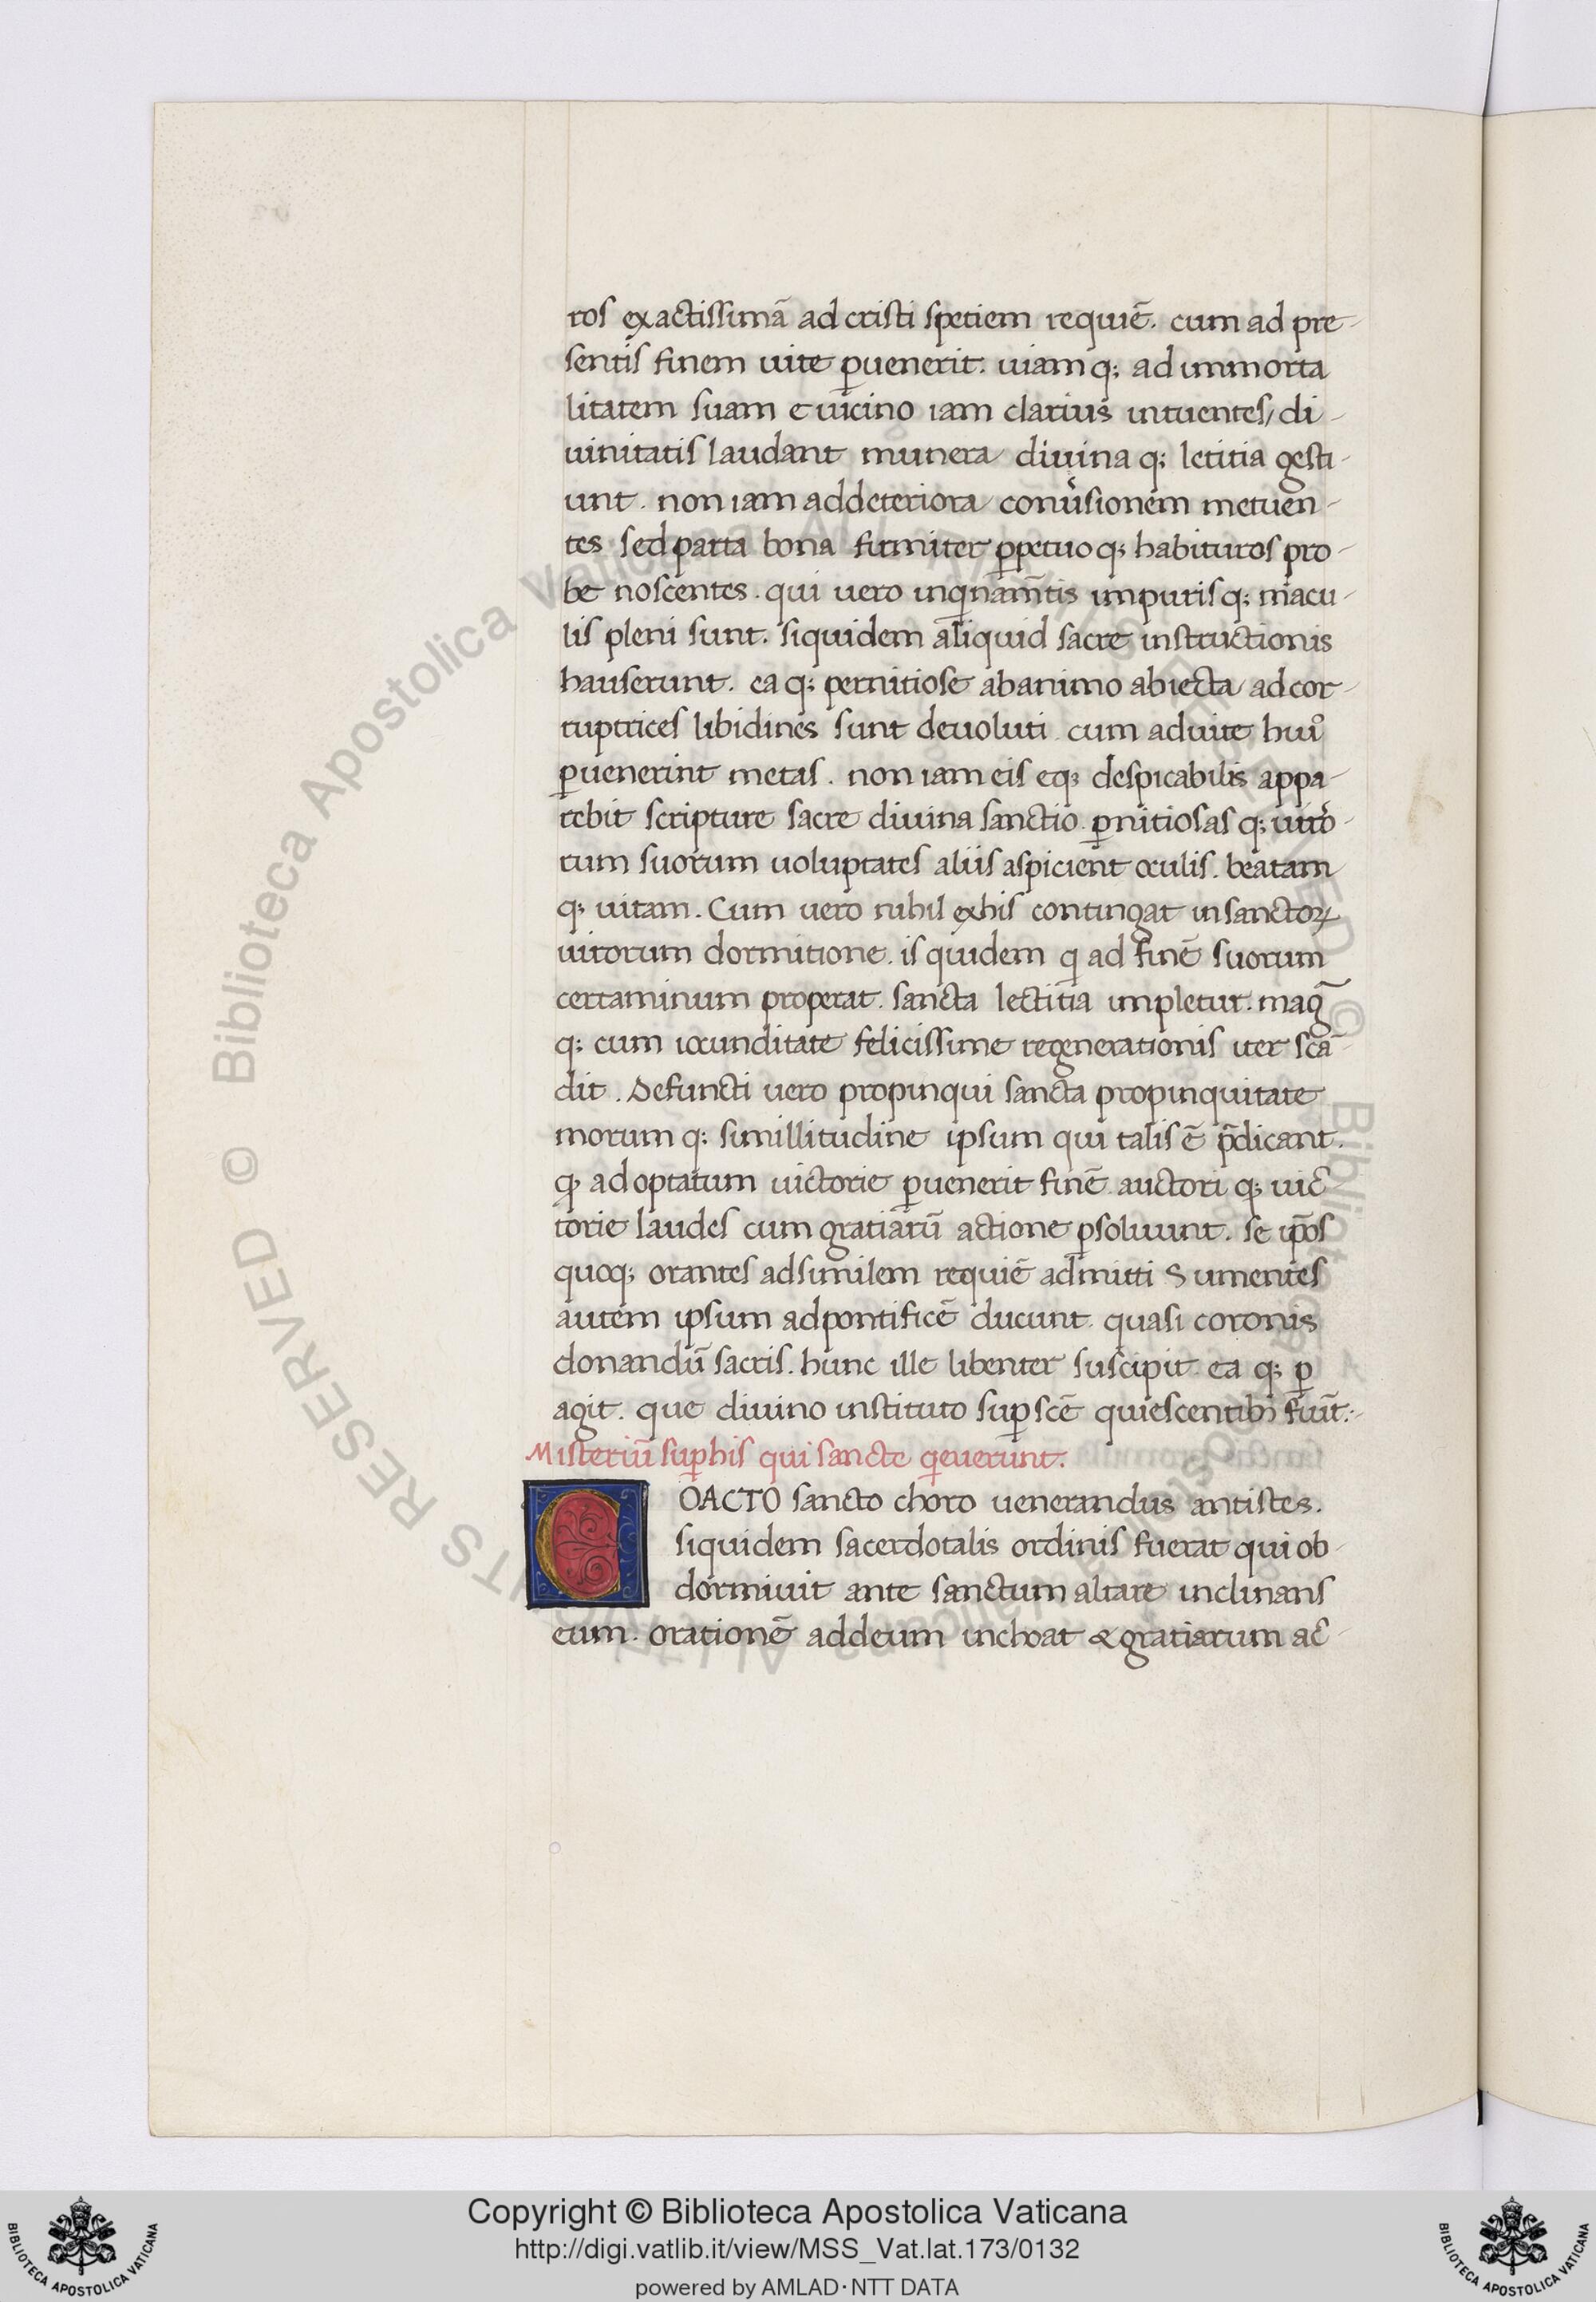 ros exactissimā ad cristi spetiem requiē. cum ad pre-
sentis finem uite ꝑuenerit. uiamq; ad immorta
litatem suam e uicino iam clarius intuentes/ di-
uinitatis laudant munera diuina q; letitia gesti-
unt. non iam ad deteriora conu̾sionem metuen-
tes sed parta bona firmiter ꝑpetuo q; habituros pro-
be noscentes. qui uero inqnam̄tis impuris q; macu-
lis pleni sunt. siquidem aliquid sacre instructionis
hauserunt. ea q; pernitiose ab animo abiecta ad cor-
ruptrices libidines sunt deuoluti. cum ad uite huiꝰ
ꝑuenerint metas. non iam eis eq; despicabilis appa-
rebit scripture sacre diuina sanctio. ꝑnitiosas q; uitio-
rum suorum uoluptates aliis aspicient oculis. beatam
q; uitam. Cum uero nihil ex his contingat in sanctoꝝ
uirorum dormitione. is quidem q ad finē suorum
certaminum properat. sancta lectitia impletur. mag̅
q; cum iocunditate felicissime regenerationis iter scā-
dit. Defuncti uero propinqui sancta propinquitate
morum q; simillitudine ipsum qui talis ē p̄dicant.
ꝙ ad optatum uictorie ꝑuenerit finē. auctori q; uic̄
torie laudes cum gratiarū actione ꝑsoluunt. se ip̄os
quoq; orantes ad similem requiē admitti Sumentes
autem ipsum ad pontificē ducunt. quasi coronis
donandū sacris. hunc ille libenter suscipit. ea q; ꝑ
agit. que diuino instituto suꝑ scē quiescentibꝰ fiūt.
Misteriū suꝑ his qui sancte qeuerunt.
COACTO sancto choro uenerandus antistes.
siquidem sacerdotalis ordinis fuerat qui ob-
dormiuit ante sanctum altare inclinans
eum. orationē ad deum inchoat & gratiarum ac̄-
© Biblioteca Apostolica Vaticana
Copyright © Biblioteca Apostolica Vaticana
http://digi.vatlib.it/view/MSS_Vat.lat.173/0132
powered by AMLAD·NTT DATA
BIBLIOTECA APOSTOLICA VATICANA
BIBLIOTECA APOSTOLICA VATICANA